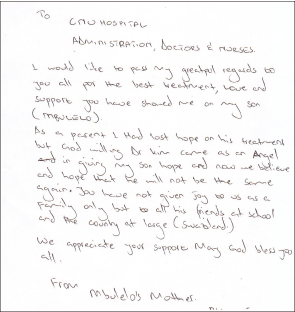 To
CMU HOSPITAL
ADMINISTRATION, DOCTORS & NURSES.
I would like to pass my greatful regards to
you all for the best treatment, love and
support you have showed me on my son
(MBULELO).
As a parent I Had lost hope on his treatment
but God willing Dr Kim came as an Angel
in giving my son hope and now we believe
and hope that he will not be the same
again. You have not given joy to us as a
family only but to all his friends at school
and the country at large (Swaziland)
We appreciate your support May God bless you
all.
From
Mbulelo's Mother.